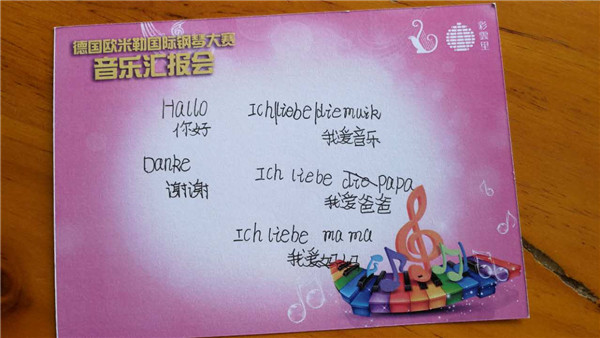 德国欧米勒国际钢琴大赛
音乐汇报会
彩云里
Hallo
你好
Ich liebe die muik
我爱音乐
Danke
谢谢
Ich liebe die papa
我爱爸爸
Ich liebe mama
我爱妈妈